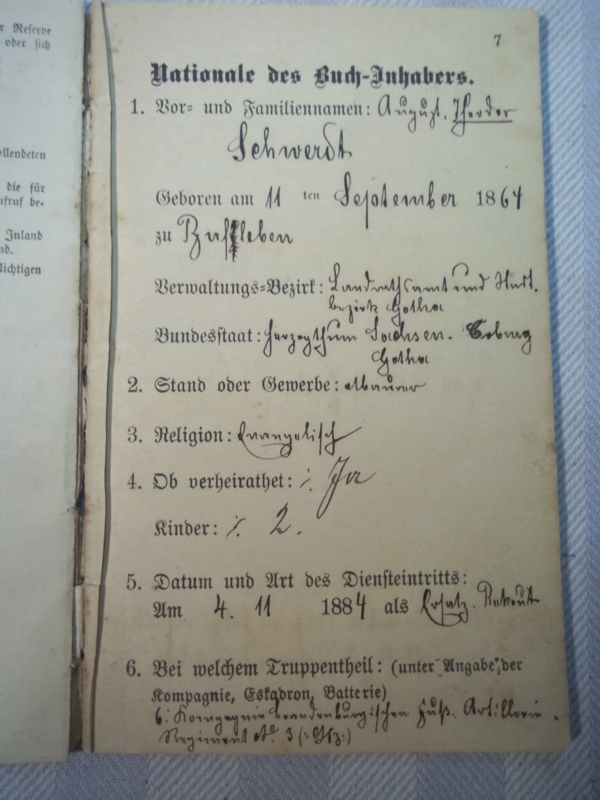 r Reserve
oder sich
ollendeten
die für
ufruf be-
Inland
nd.
lichtigen
7
Nationale des Buch-Inhabers.
1. Vor- und Familiennamen: August, Theodor
Schwerdt
Geboren am 11 ten September 1864
zu Buffleben
Verwaltungs-Bezirk: Landrathsamt und
bezirk Gotha
Bundesstaat: Herzogthum Sachsen-Coburg
Gotha
2. Stand oder Gewerbe: Maurer
3. Religion: Evangelisch
4. Ob verheirathet: ·/. Ja
Kinder: ·/. 2.
5. Datum und Art des Diensteintritts:
Am 4. 11 1884 als Ersatz-Rekrut
6. Bei welchem Truppentheil: (unter Angabe der
Kompagnie, Eskadron, Batterie)
6. Kompagnie Brandenburgischen Fuß-Artillerie-
Regiment No. 3